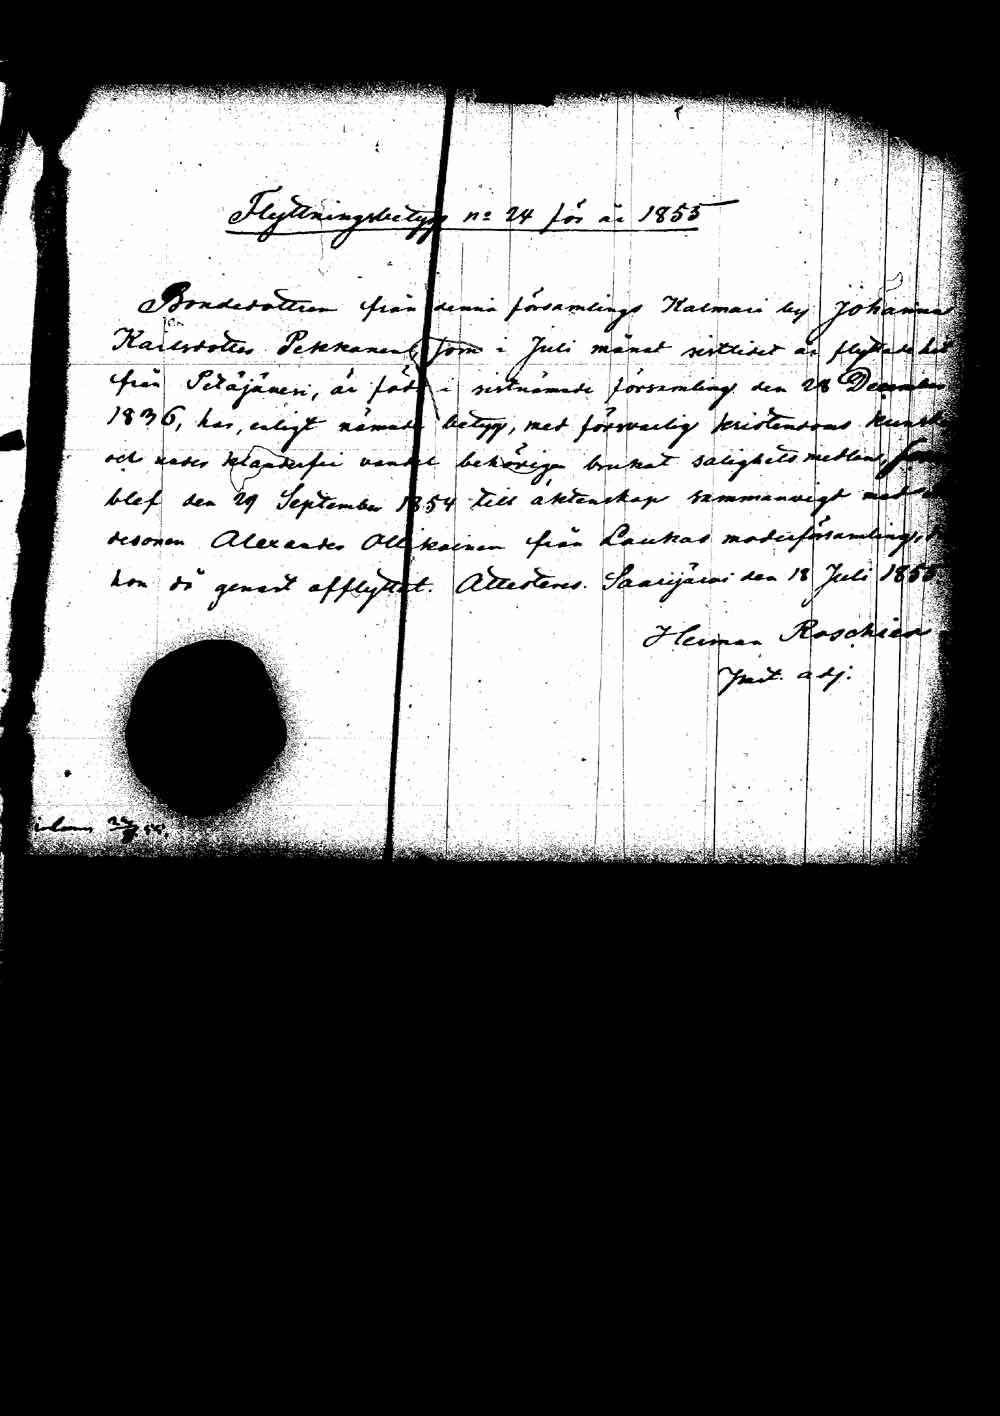 Flyttningsbetyg no 24 för år 1855
Bondedottren från denna församlings Kalmari by Johanna
Karlsdotter Pekkanen, som i Juli månad sistlidet år flyttade hit
från Petäjävesi, är född i sistnämnde församling den 28 December
1836, har, enligt nämnde betyg, med försvarlig kristendoms kunskap
och under klanderfri vandel behörigen brukat salighets medlen, samt
blef den 29 September 1854 till äktenskap sammanvigd med
desonen Alexander Ollikainen från Laukas moderförsamling,
hon då genast afflyttat. Attesteras. Saarijärvi den 18 Juli 1855
Herman Roschier
adj.